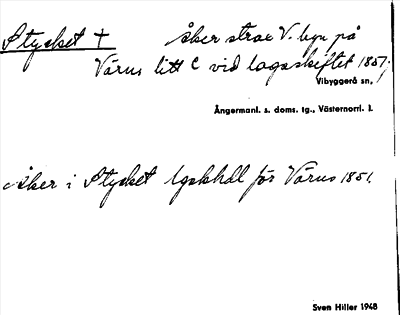 Stycket † åker strax V. byn på
Vårus litt C vid lagaskiftet 1857;
Vibyggerå sn,
Ångermanl. s. doms. tg., Västernorrl. l.
åker i Stycket lgskhdl för Vårus 1851.
Sven Hiller 1948